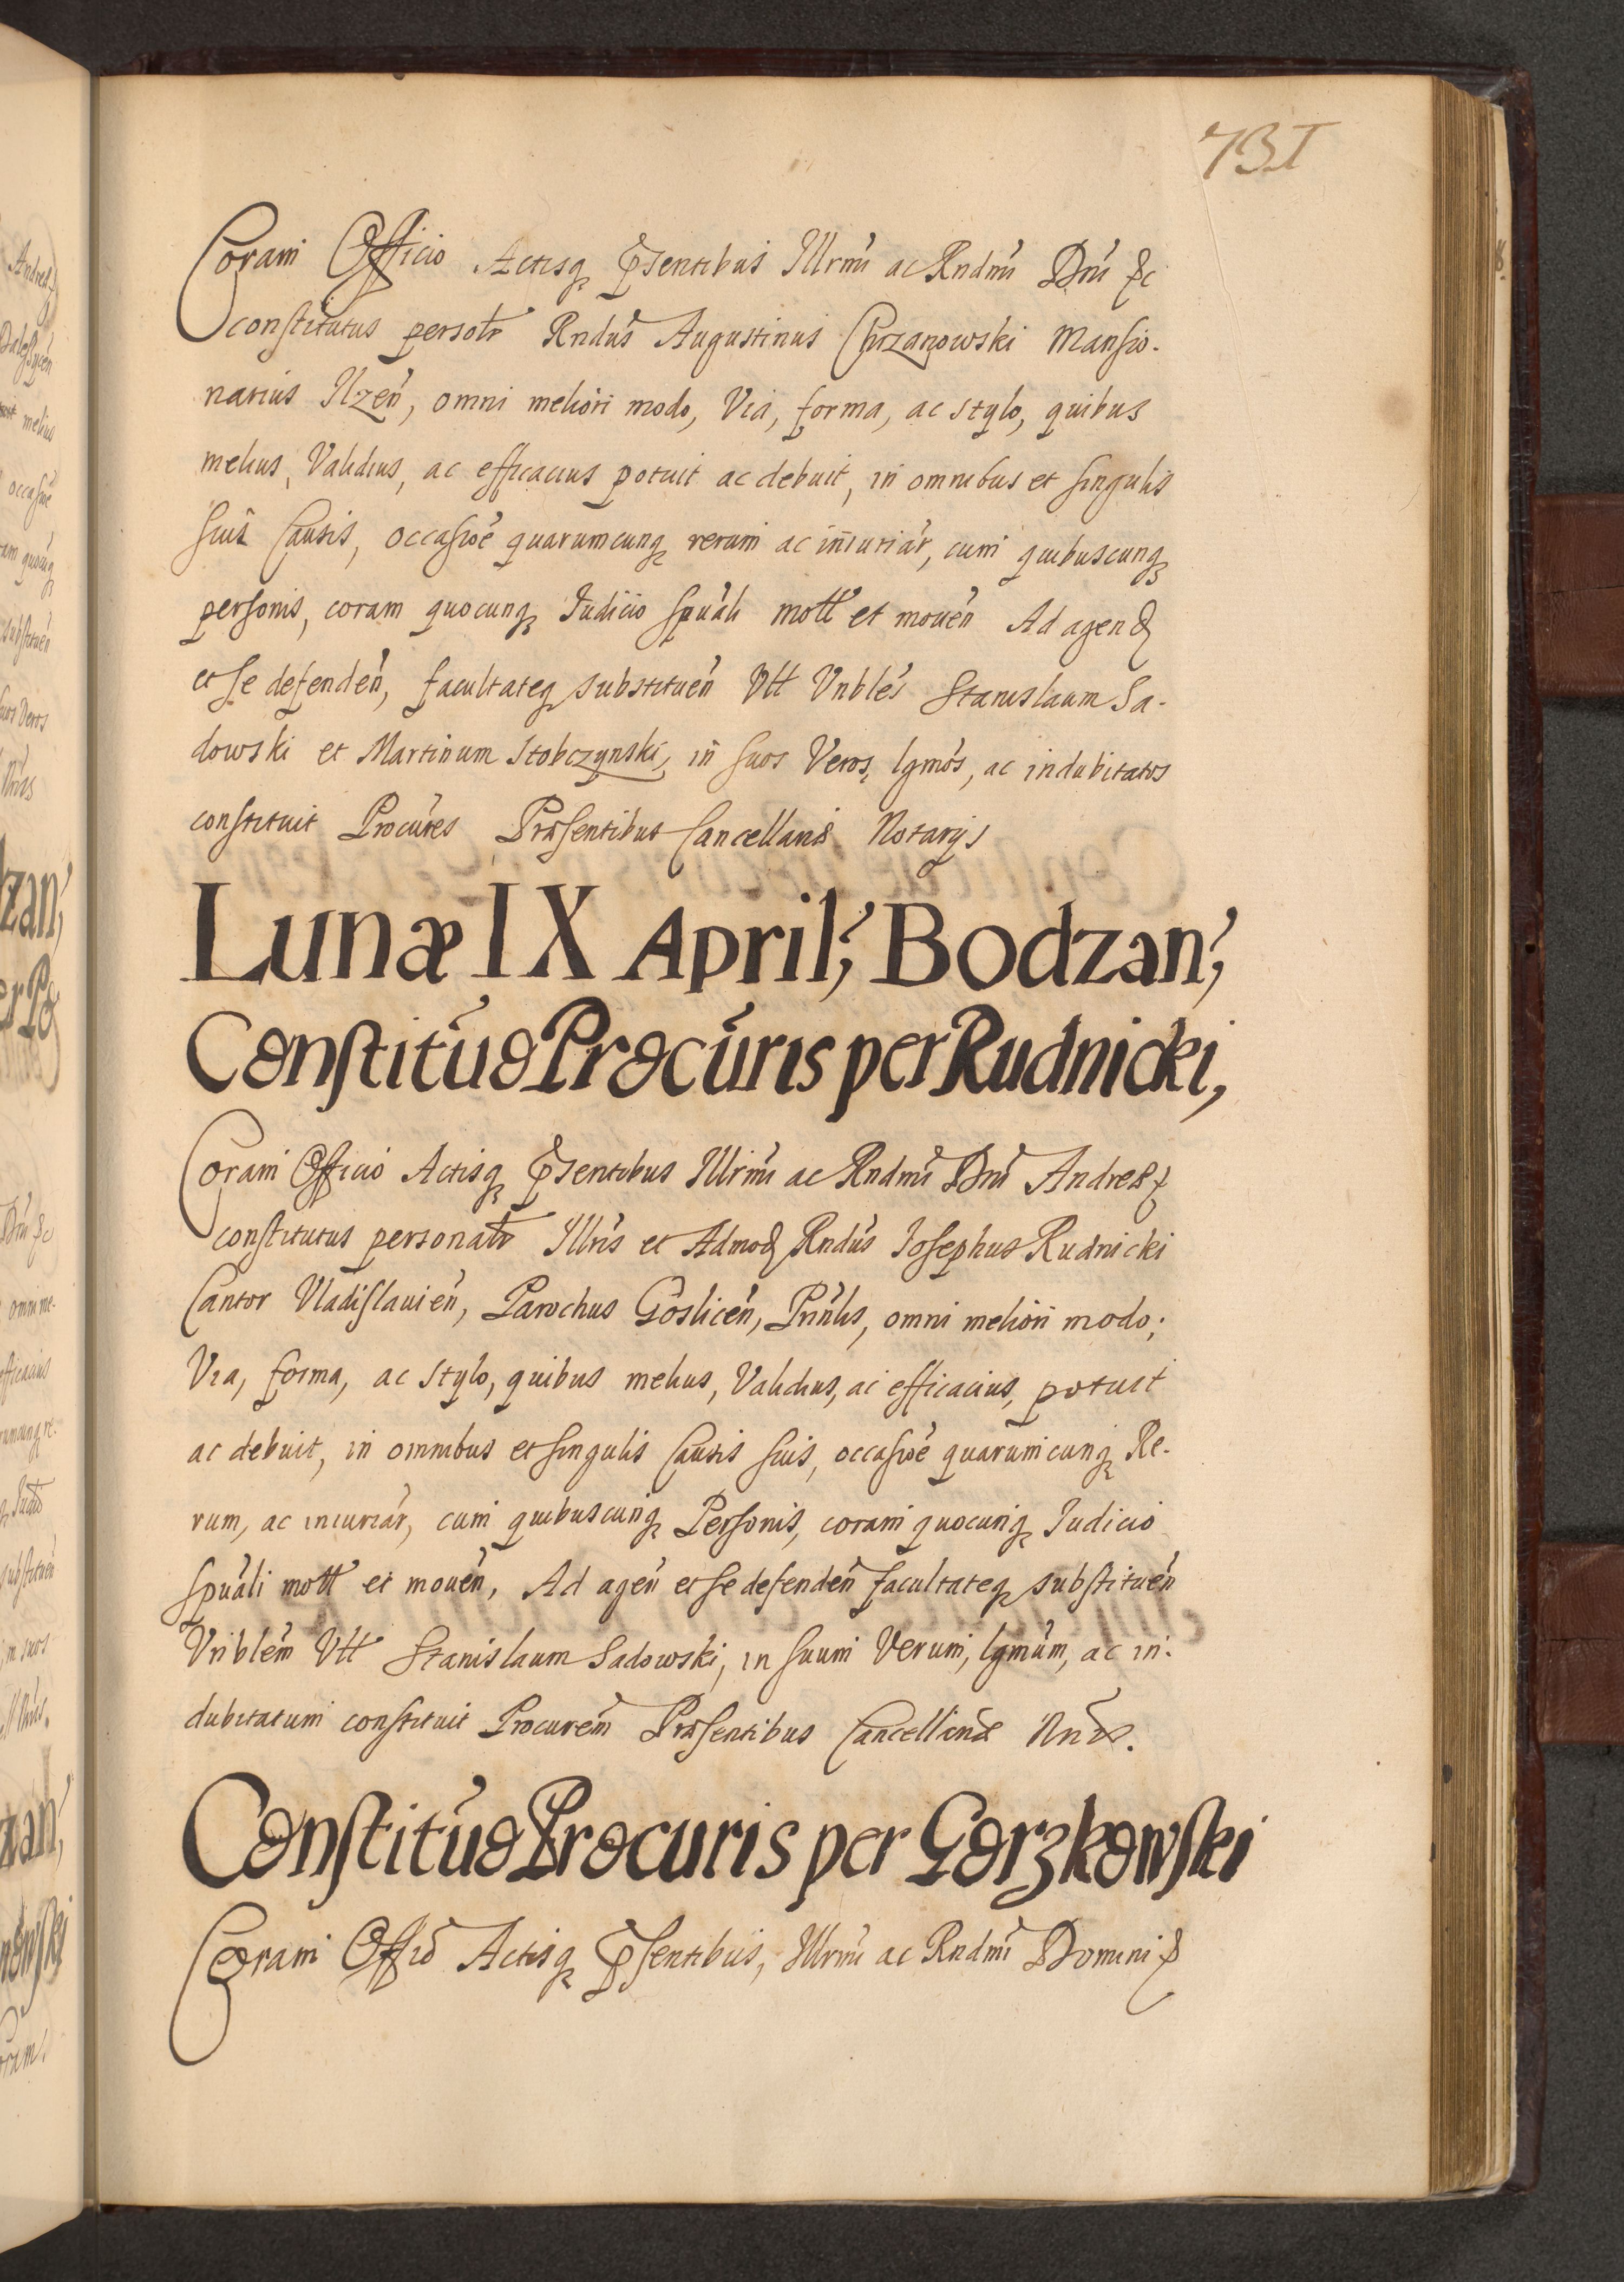 731
Coram Officio Actisq̢ Prsentibus Illrmi ac Rndmi Dni &c
constitutus persolr Rndus Augustinus Chrzanowski Mansio-
narius Ilzen, omni meliori modo, Via, forma, ac stylo, quibus
melius, Validius, ac efficacius potuit ac debuit, in omnibus et singulis
suis Causis, occasioe quarumcunq̢ rerum ac iniuriar, cum quibuscunq̢
personis, coram quocunq̢ Iudicio spuali mott et mouen Ad agend
et se defenden, facultateq̢ substituen Vtt Vnbles Stanislaum Sa-
dowski et Martinum Stobczynski, in suos Veros, lgmos, ac indubitatos
constituit Procures Præsentibus Cancellariæ Notarijs
Lunæ IX April; Bodzan;
Constituo Procuris per Rudnicki,
Coram Officio Actisq̢ Prsentibus Illrmi ac Rndmi Dni Andreæ
constitutus personalr Illris et Admod Rndus Iosephus Rudnicki
Cantor Vladislauien, Parochus Goslicen, Pnnlis, omni meliori modo;
Via, forma, ac stylo, quibus melius, Validius, ac efficacius, potuit
ac debuit, in omnibus et singulis Causis suis, occasioe quarumcunq̢ Re-
rum, ac iniuriar, cum quibuscunq̢ Personis, coram quocunq̢ Iudicio
spuali mott et mouen, Ad agen et se defenden facultateq̢ substituen
Vnblem Vtt Stanislaum Sadowski, in suum Verum, lgmum, ac in-
dubitatum constituit Procurem Præsentibus Cancellariæ Nris.
Constituo Procuris per Gorzkowski
Coram Offio Actisq̢ Prsentibus, Illrmi ac Rndmi Domini &